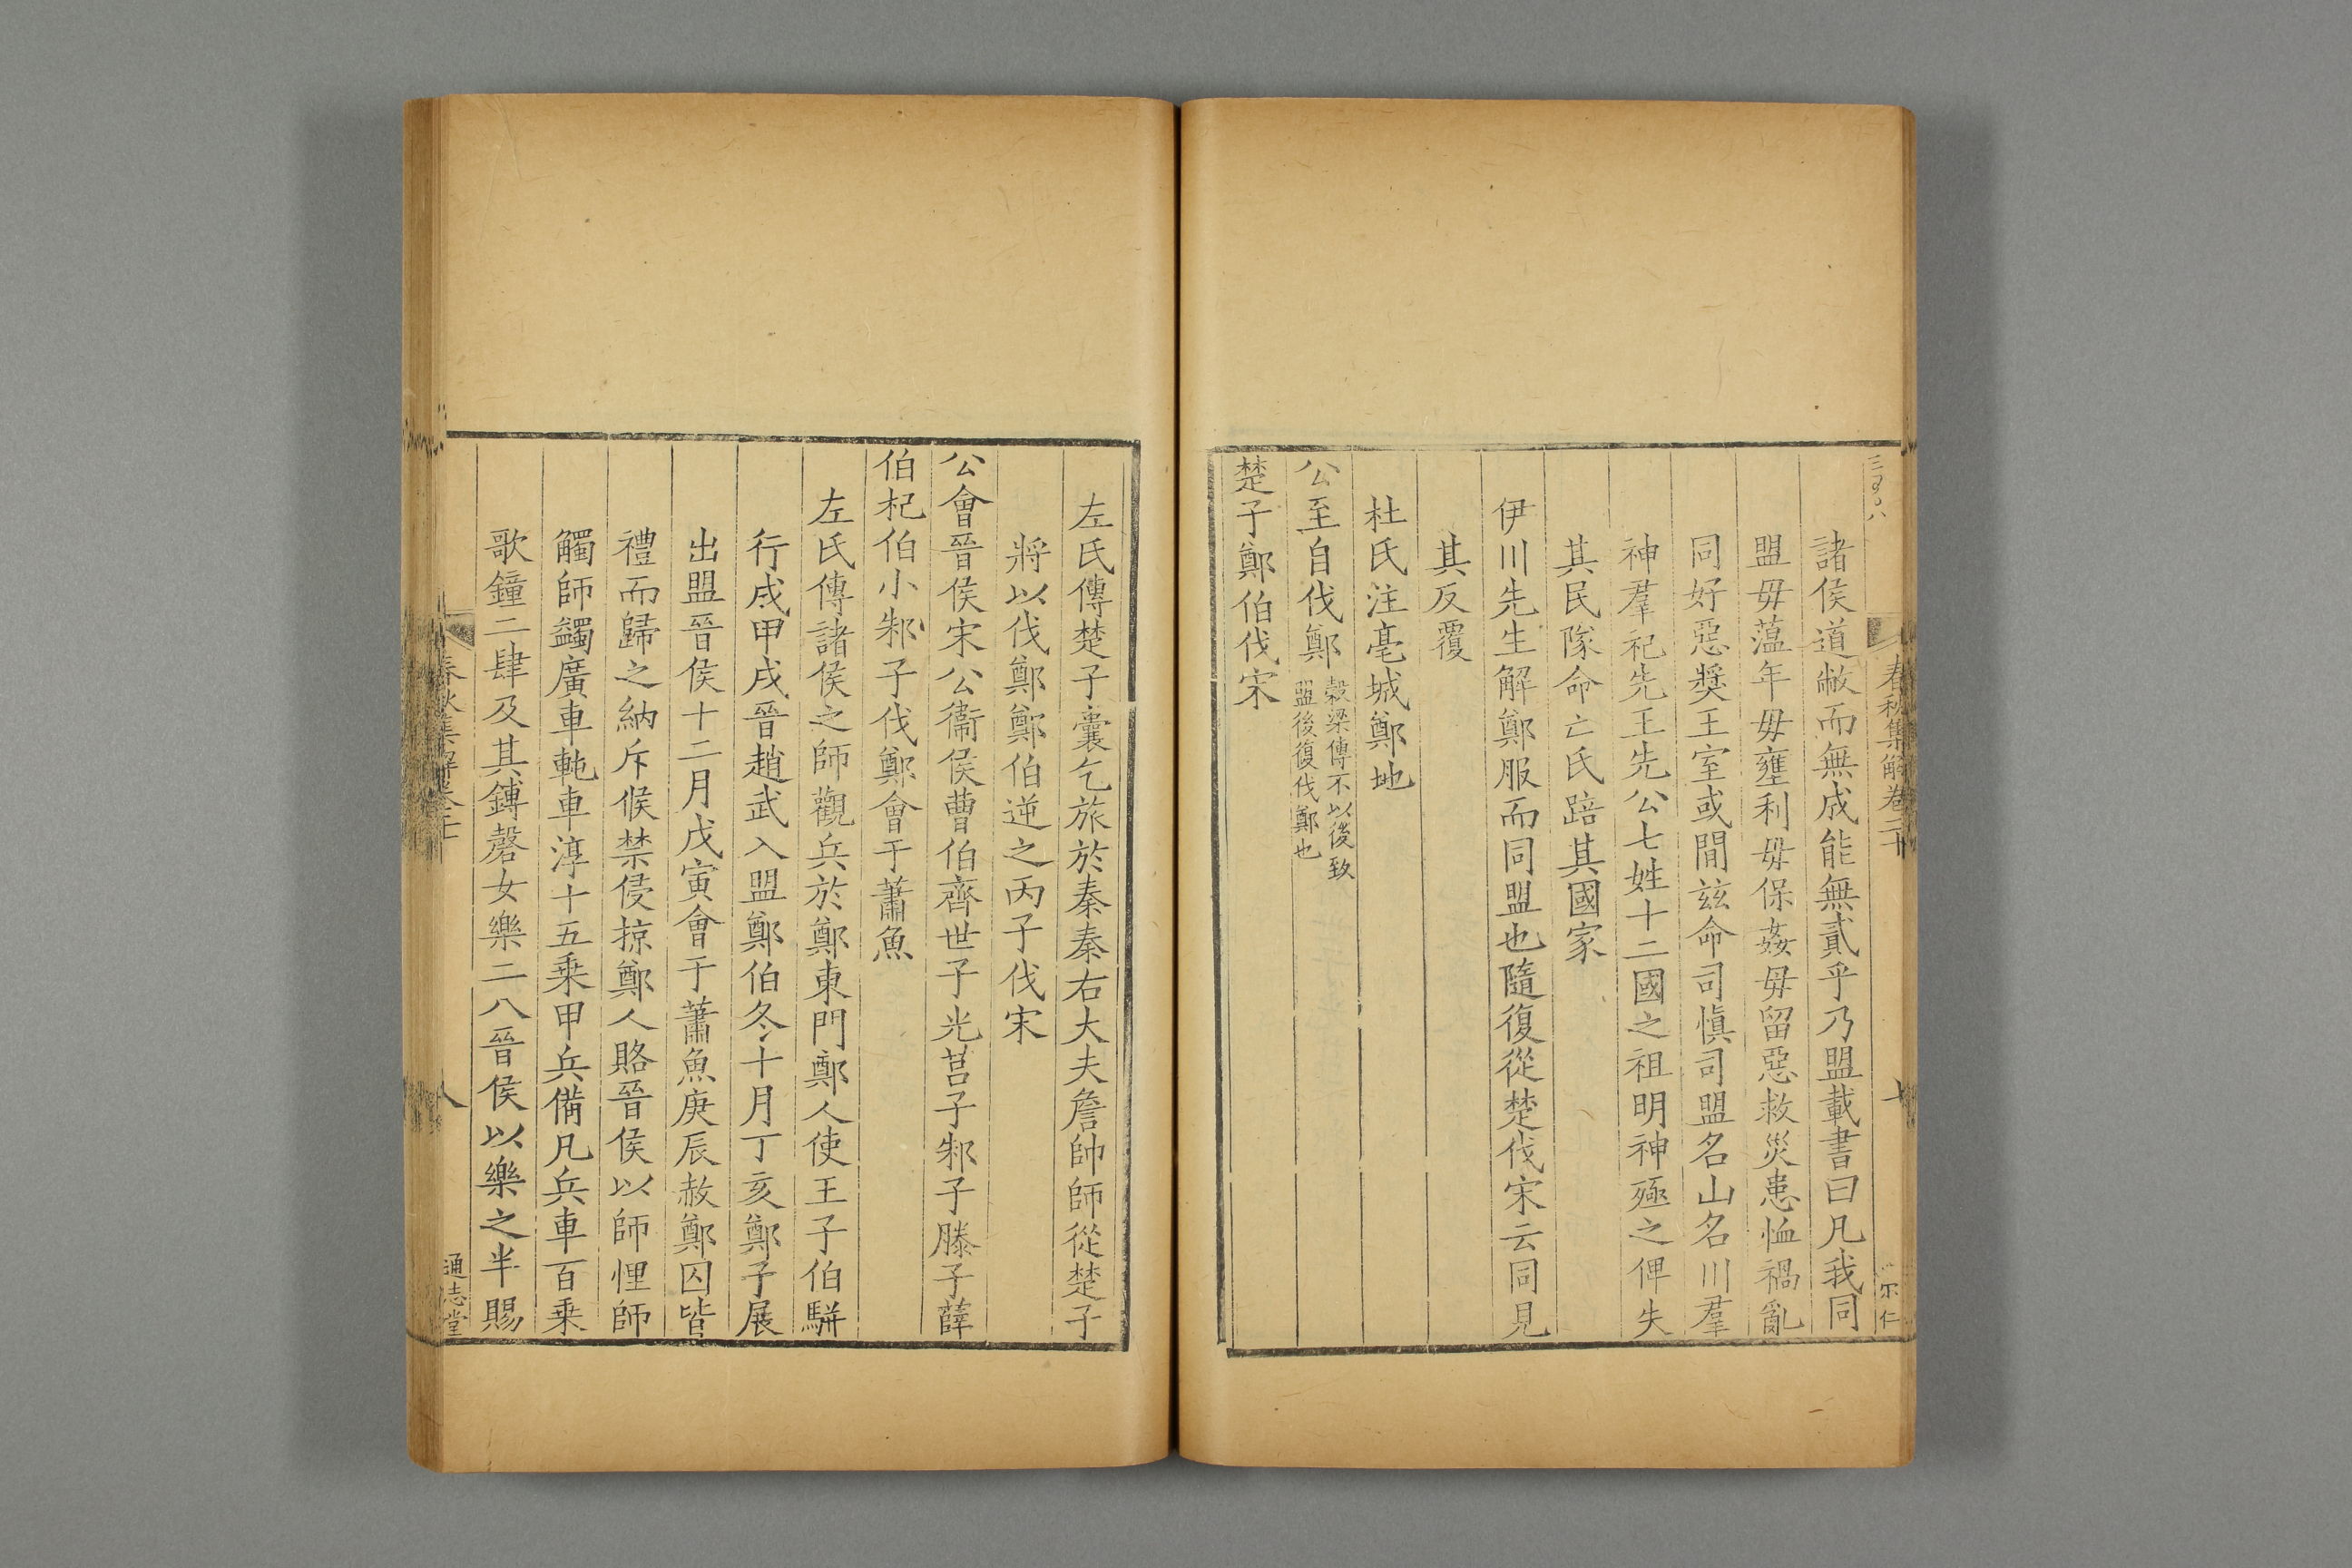 春秋集解卷二十
諸侯道敝而無成能無貳乎乃盟載書曰凡我同
盟毋薀年毋壅利毋保姦毋留惡救災患恤禍亂
同好惡奬王室或間兹命司慎司盟名山名川羣
神羣祀先王先公七姓十二國之祖明神殛之俾失
其民隊命亡氏踣其國家
伊川先生解鄭服而同盟也隨復從楚伐宋云同見
其反覆
杜氏注亳城鄭地
公至自伐鄭
穀梁傳不以後致
盟後復伐鄭也
楚子鄭伯伐宋
左氏傳楚子囊乞旅於秦秦右大夫詹帥師從楚子
將以伐鄭鄭伯逆之丙子伐宋
公會晉侯宋公衞侯曹伯齊世子光莒子邾子滕子薛
伯杞伯小邾子伐鄭會于蕭魚
左氏傳諸侯之師觀兵於鄭東門鄭人使王子伯駢
行成甲戌晉趙武入盟鄭伯冬十月丁亥鄭子展
出盟晉侯十二月戊寅會于蕭魚庚辰赦鄭囚皆
禮而歸之納斥候禁侵掠鄭人賂晉侯以師悝師
觸師蠲廣車軘車淳十五乘甲兵備凡兵車百乘
歌鐘二肆及其鎛磬女樂二八晉侯以樂之半賜
春秋集解卷二十
通志堂